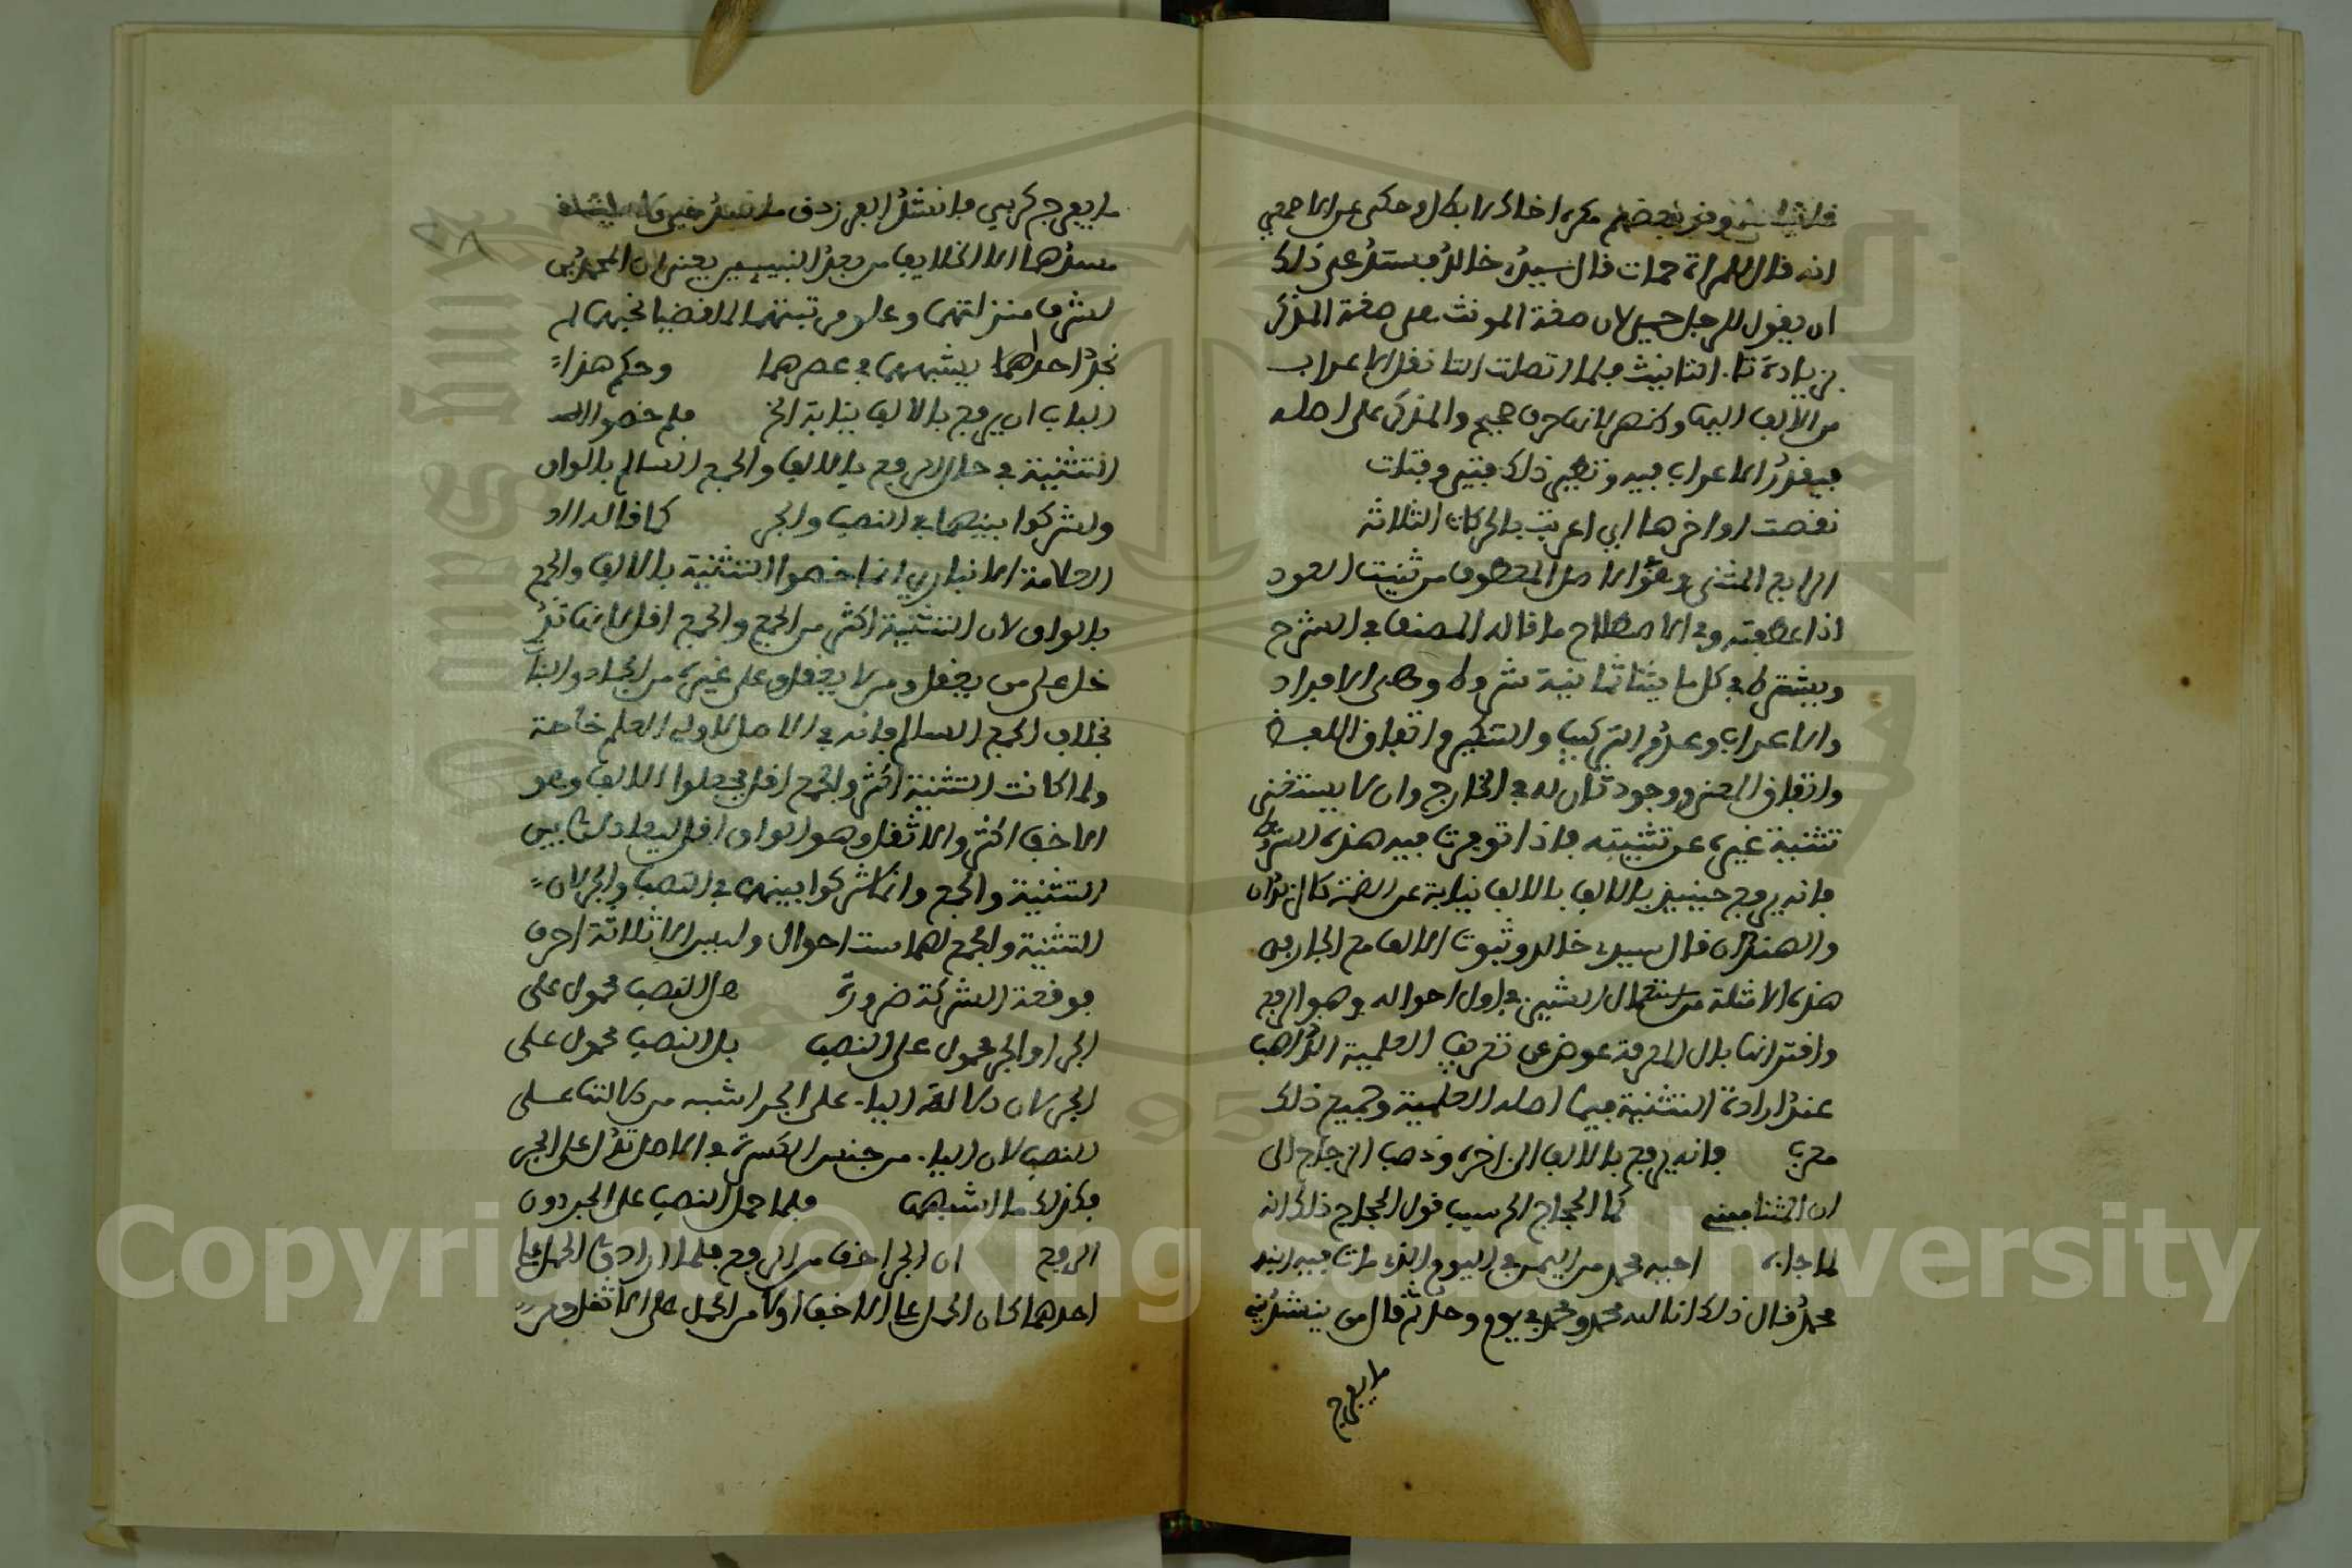 انه قال للمراة حمات قال سيد خالد فيستد على ذلك
ان يقول للرجل حمى لان صفة المونث هي صفة المذكر
بزيادة تاء التانيث فلما اتصلت التا نقل الاعراب
من الالف اليها وظهر لانها حرف صحيح والمذكر على اصله
فيقدر الاعراب فيه ونظير ذلك فتى وفتات
نقصت اواخرها اي اعربت بالحركات الثلاثة
الرابع المثنى وهو في الاصل المعطوف من ثنيت العود
اذا عطفته وفي الاصطلاح ما قاله المصنف في الشرح
ويشترط في كل ما يثنا ثمانية شروط وهي الافراد
والاعراب وعدم التركيب والتنكير واتفاق اللفظ
واتفاق المعنى ووجود ثان له في الخارج وان لا يستغنى
تثنية غيره عن تثنيته فاذا توفرت فيه هذه الشروط
فانه يرفع حينيذ بالالف بالالف نيابة عن الضمة كالزيدان
والهندان قال سيدي خالد وثبوت الالف مع الجار في
هذه الامثلة من استعمال الشيء في اول احواله وهو الرفع
واقترانها بال المعرفة عوض عن تعريف العلمية الذاهب
عند ارادة التثنية فيما اصله العلمية وجميع ذلك
معرب فانه يرفع بالالف الى اخره وذهب الزجاج الى
ان المثنا مبني كما الحجاج الم سبب قول الحجاج ذلك انه
لما جاءه اخيه محمد من اليمن في اليوم الذي مات فيه ابنه
محمد فقال ذلك انا لله محمد ومحمد في يوم واحد ثم قال من ينشدني
ما يفرج
ما يفرج كربي فانشد الفرزدق
مسدهما الا الخلايف من بعد النبيين يعني ان المحمدين
لشرف منزلتهما وعلو مرتبتهما لما قضيا نحبهما لم
نجد احداهما يشبههما في عصرهما وحكم هذا
الباب ان يرفع بالالف نيابة الخ فلم خصوا
التثنية في حال الرفع بالالف والجمع السالم بالواو
ولشركوا بينهما في النصب والجر كما قاله
العلامة الانباري انما خصوا التثنية بالالف والجمع
بالواو لان التثنية اكثر من الجمع والجمع اقل لانها تد
خل على من يعقل ومن لا يعقل وعلى غيره من الجماد والنبا
بخلاف الجمع السالم فانه في الاصل لاولي العلم خاصة
ولما كانت التثنية اكثر والجمع اقل جعلوا الالف وهو
الاخف اكثر والاثقل وهو الواو اقل ليعادلو بين
التثنية والجمع وانما شركوا بينهما في النصب والجر لان
التثنية والجمع لهما ست احوال وليس الا ثلاثة احرف
فوقعة الشركة ضرورة هل النصب محمول على
الجر او الجر محمول على النصب بل النصب محمول على
الجر لان دلالة الياء على الجر اشبه من دلالتها على
النصب لان الياء من جنس الكسرة في الاصل تدل على الجر
فكذلك ما اشبهها فلما حمل النصب على الجر دون
الرفع ان الجر اخف من الرفع فلما ارادوا الحمل على
احدهما كان الحمل على الاخف اولا من الحمل على الاثقل ومن
Copyright © King Saud University